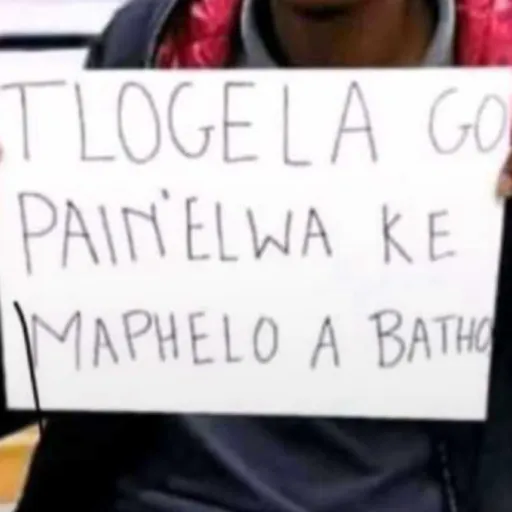 TLOGELA GO
PAIN'ELWA KE
MAPHELO A BATHO